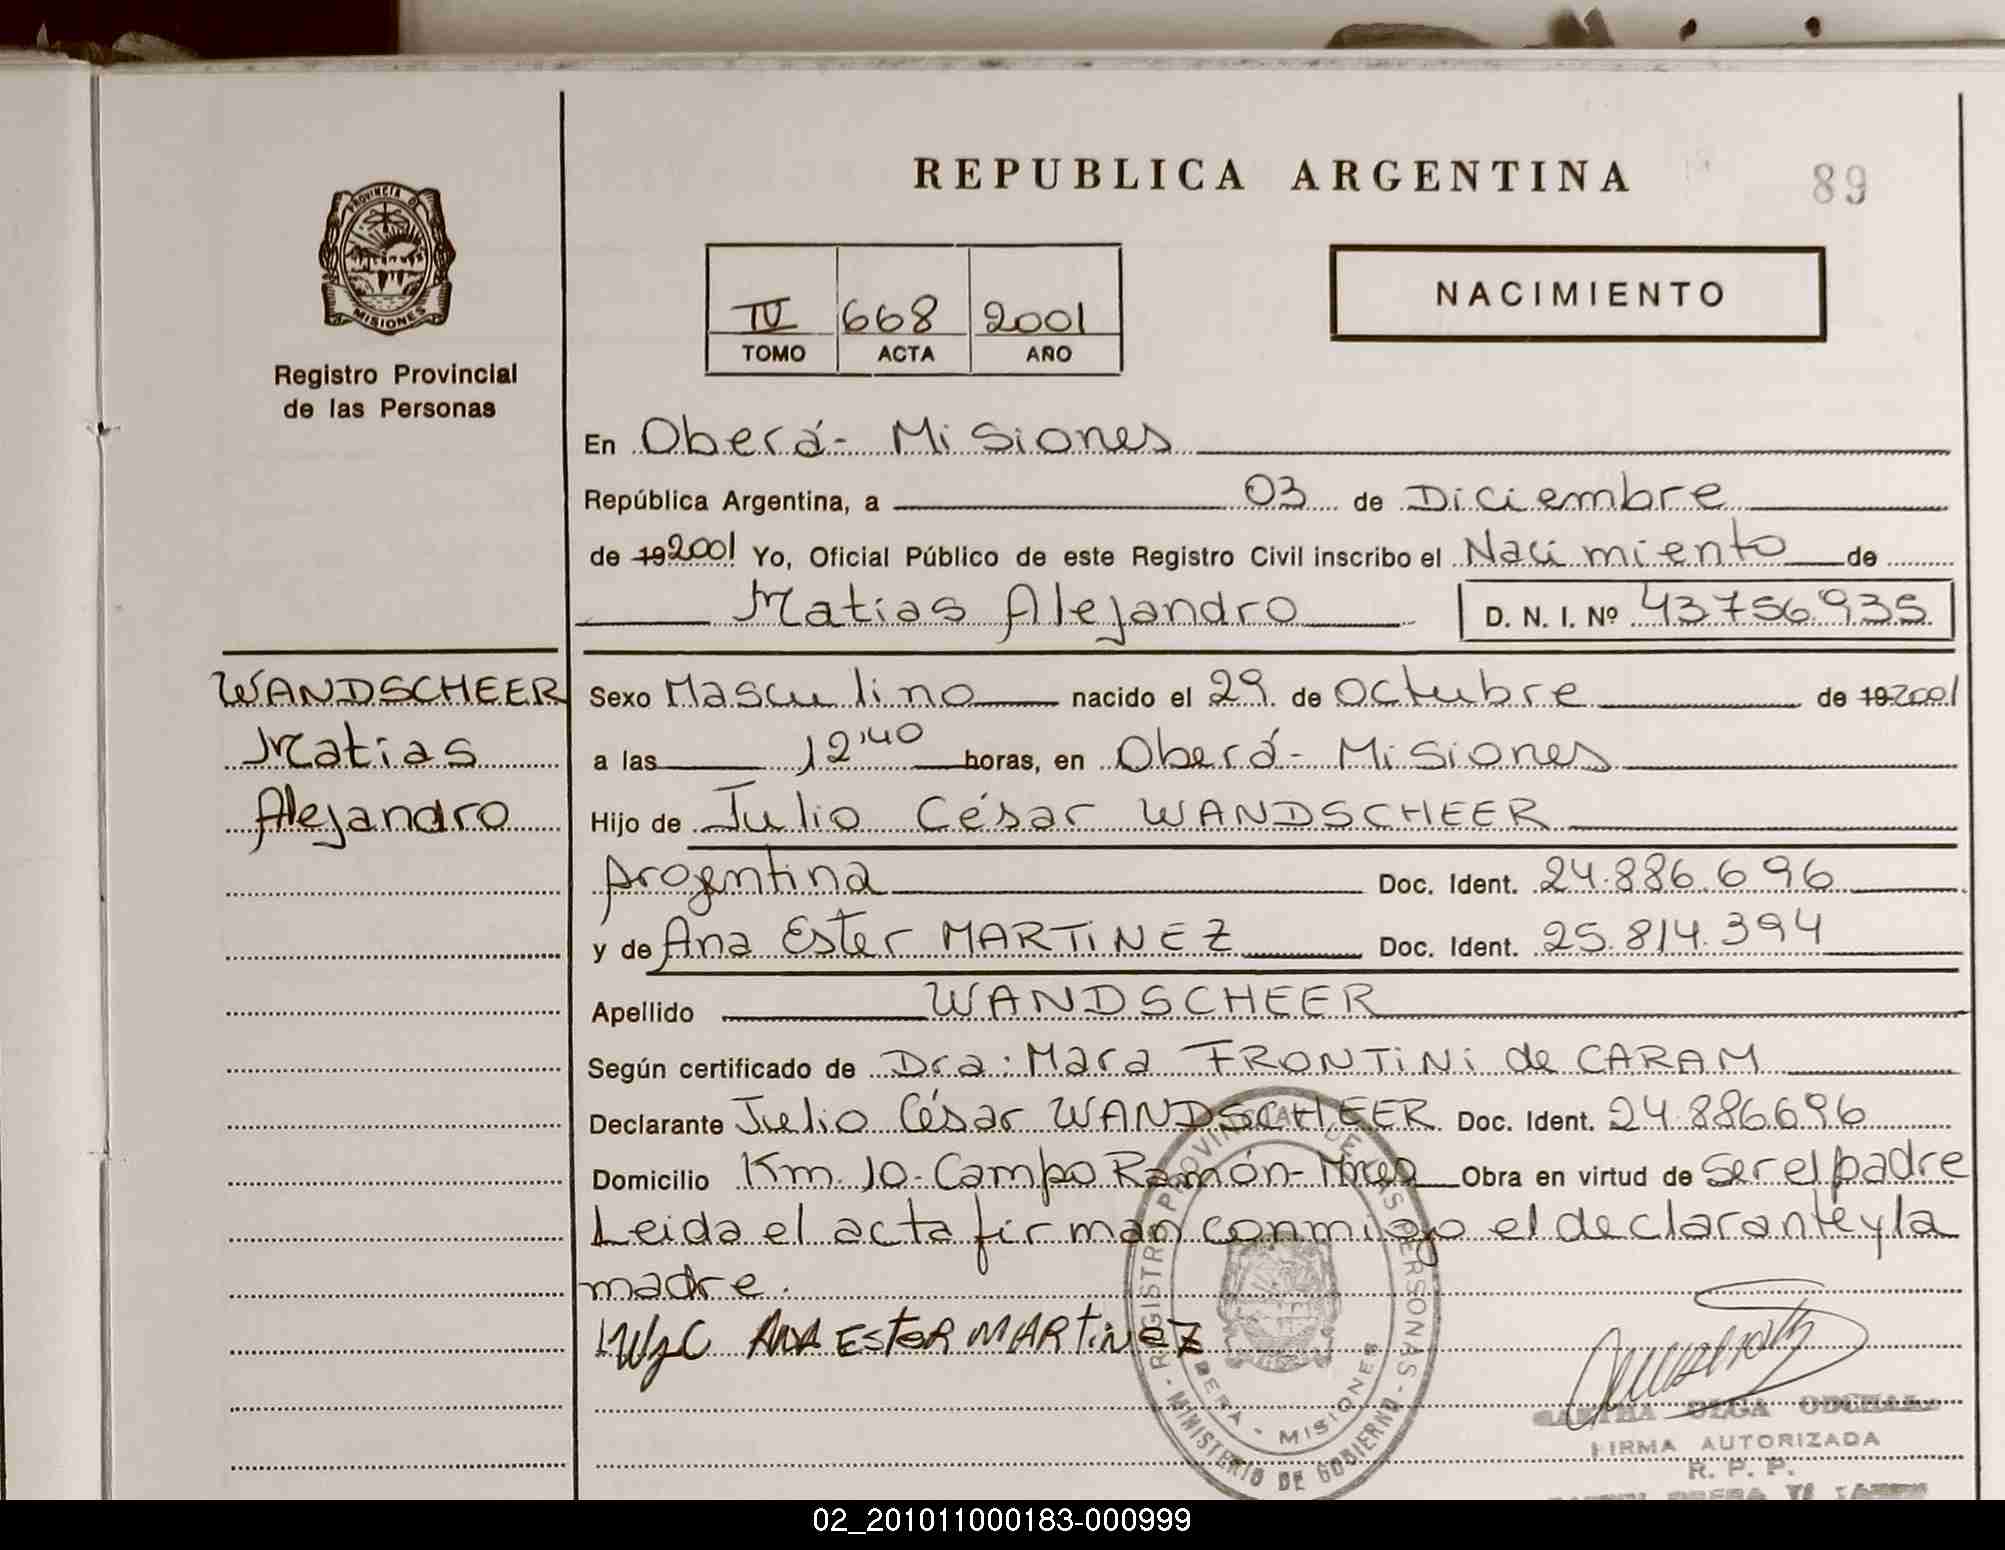 REPUBLICA ARGENTINA
89
PROVINCIA D
MISIONES
Registro Provincial
de las Personas
IV 668 2001
TOMO ACTA AÑO
NACIMIENTO
En Oberá- Misiones
República Argentina, a 03 de Diciembre
de 19 2001 Yo, Oficial Público de este Registro Civil inscribo el Nacimiento de
Matias Alejandro D. N. I. Nº 43.756.935
WANDSCHEER
Matias
Alejandro
Sexo Masculino nacido el 29 de Octubre de 19 2001
a las 12'40 horas, en Oberá- Misiones
Hijo de Julio César WANDSCHEER
Argentina Doc. Ident. 24.886.696
y de Ana Ester MARTiNEZ Doc. Ident. 25.814.394
Apellido WANDSCHEER
Según certificado de Dra: Mara FRONTiNi de CARAM
Declarante Julio César WANDSCHEER Doc. Ident. 24.886.696
Domicilio Km. 10- Campo Ramón- Obra en virtud de ser el padre
Leida el acta firman conmigo el declarante y la
madre.
ANA EsteR MARTiNEZ
REGISTRO PROVINCIAL DE LAS PERSONAS
BERA - MISIONES
MINISTERIO DE GOBIERNO
OLGA
FIRMA AUTORIZADA
R. P. P.
02_201011000183-000999